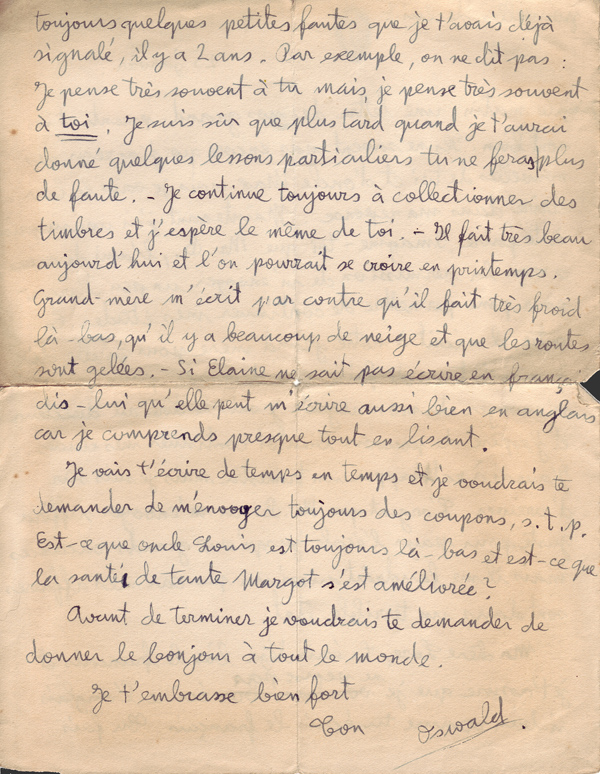 toujours quelques petites fautes que je t'avais déjà
signalé, il y a 2 ans. Par exemple, on ne dit pas :
Je pense très souvent à tu mais, je pense très souvent
à toi. Je suis sûr que plus tard quand je t'aurai
donné quelques lessons particuliers tu ne feras plus
de faute. - Je continue toujours à collectionner des
timbres et j'espère le même de toi. - Il fait très beau
aujourd'hui et l'on pourrait se croire en printemps.
Grand-mère m'écrit par contre qu'il fait très froid
là-bas, qu'il y a beaucoup de neige et que les routes
sont gelées. - Si Elaine ne sait pas écrire en françi
dis-lui qu'elle peut m'écrire aussi bien en anglais
car je comprends presque tout en lisant.
Je vais t'écrire de temps en temps et je voudrais te
demander de m'envoyer toujours des coupons, s.t.p.
Est-ce que oncle Louis est toujours là-bas et est-ce que
la santé de tante Margot s'est améliorée?
Avant de terminer je voudrais te demander de
donner le bonjour à tout le monde.
Je t'embrasse bien fort
Ton Oswald.